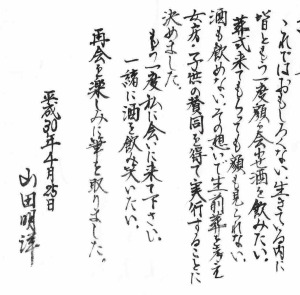 これではおもしろない。生きている内に
皆ともう一度顔を会せ酒を飲みたい。
葬式来てもらっても顔も見られない、
酒も飲めない。その想いで生前葬を考え
女房・子供の賛同を得て実行することに
決めました。
もう一度私に会いに来て下さい。
一緒に酒を飲み笑いたい。
再会を楽しみに筆を取りました。
平成30年4月25日
山田明洋